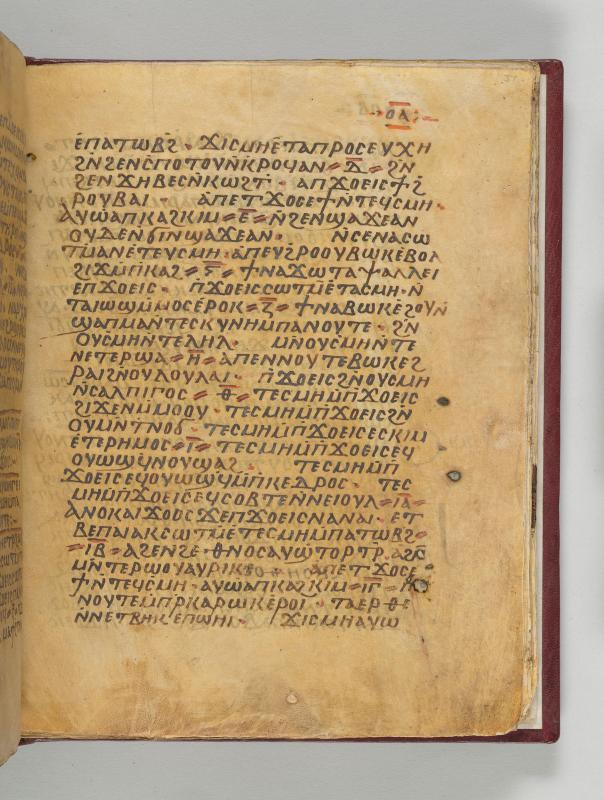 ⲟⲁ
ⲉⲡⲁⲧⲱⲃϩ · ϫⲓⲥⲙⲏⲉⲧⲁⲡⲣⲟⲥⲉⲩⲭⲏ
ϩⲛϩⲉⲛⲥⲡⲟⲧⲟⲩⲛⲕⲣⲟϥⲁⲛ = ⲇ̅ = ϩⲛ
ϩⲉⲛϫⲏⲃⲉⲥⲛⲕⲱϩⲧ · ⲁⲡϫⲟⲉⲓⲥϯϩ
ⲣⲟⲩⲃⲁⲓ · ⲁⲡⲉⲧϫⲟⲥⲉϯⲛⲧⲉϥⲥⲙⲏ ·
ⲁⲩⲱⲁⲡⲕⲁϩⲕⲓⲙ = ⲉ̅ = ⲛϩⲉⲛϣⲁϫⲉⲁⲛ
ⲟⲩⲇⲉⲛϭⲓⲛϣⲁϫⲉⲁⲛ · ⲛⲥⲉⲛⲁⲥⲱ
ⲧⲙⲁⲛⲉⲧⲉⲩⲥⲙⲏ · ⲁⲡⲉⲩϩⲣⲟⲟⲩⲃⲱⲕⲉⲃⲟⲗ
ϩⲓϫⲙⲡⲕⲁϩ = ⲋ̅ = ϯⲛⲁϫⲱⲧⲁⲯⲁⲗⲗⲉⲓ
ⲉⲡϫⲟⲉⲓⲥ · ⲡϫⲟⲉⲓⲥⲥⲱⲧⲙⲉⲧⲁⲥⲙⲏ · ⲛ
ⲧⲁⲓⲱϣⲙⲙⲟⲥⲉⲣⲟⲕ = ⲍ̅ = ϯⲛⲁⲃⲱⲕⲉϩⲟⲩⲛ
ϣⲁⲡⲙⲁⲛⲧⲉⲥⲕⲩⲛⲏⲙⲡⲁⲛⲟⲩⲧⲉ · ϩⲛ
ⲟⲩⲥⲙⲏⲛⲧⲉⲗⲏⲗ · ⲙⲛⲟⲩⲥⲙⲏⲛⲧⲉ
ⲛⲉⲧⲉⲣϣⲁ = ⲏ̅ = ⲁⲡⲉⲛⲛⲟⲩⲧⲉⲃⲱⲕⲉϩ
ⲣⲁⲓϩⲛⲟⲩⲗⲟⲩⲗⲁⲓ · ⲡϫⲟⲉⲓⲥϩⲛⲟⲩⲥⲙⲏ
ⲛⲥⲁⲗⲡⲓⲅⲟⲥ = ⲑ̅ = ⲧⲉⲥⲙⲏⲙⲡϫⲟⲉⲓⲥ
ϩⲓϫⲉⲛⲙⲙⲟⲟⲩ · ⲧⲉⲥⲙⲏⲙⲡϫⲟⲉⲓⲥϩⲛ
ⲟⲩⲙⲛⲧⲛⲟϭ · ⲧⲉⲥⲙⲏⲙⲡϫⲟⲉⲓⲥⲉⲥⲕⲓⲙ
ⲉⲧⲉⲣⲏⲙⲟⲥ = ⲓ̅ = ⲧⲉⲥⲙⲏⲙⲡϫⲟⲉⲓⲥⲉϥ
ⲟⲩⲱϣϥⲛⲟⲩϣⲁϩ · ⲧⲉⲥⲙⲏⲙⲡ
ϫⲟⲉⲓⲥⲉϥⲟⲩⲱϣϥⲙⲡⲕⲉⲇⲣⲟⲥ · ⲧⲉⲥ
ⲙⲏⲙⲡϫⲟⲉⲓⲥⲉϥⲥⲟⲃⲧⲉⲛⲛⲉⲓⲟⲩⲗ = ⲓⲁ̅ =
ⲁⲛⲟⲕⲁⲓϫⲟⲟⲥϫⲉⲡϫⲟⲉⲓⲥⲛⲁⲛⲁⲓ · ⲉⲧ
ⲃⲉⲡⲁⲓⲁⲕⲥⲱⲧⲙⲉⲧⲉⲥⲙⲏⲙⲡⲁⲧⲱⲃϩ =
= ⲓⲃ̅ = ⲁϩⲉⲛϩⲉ · ⲑⲛⲟⲥⲁⲩⲱⲧⲟⲣⲧⲣ · ⲁϩⲉⲛ
ⲙⲛⲧⲉⲣⲱⲟⲩⲁⲩⲣⲓⲕⲉ · ⲁⲡⲉⲧϫⲟⲥⲉ
ϯⲛⲧⲉϥⲥⲙⲏ · ⲁⲩⲱⲁⲡⲕⲁϩⲕⲓⲙ = ⲓⲅ̅ = ⲡ
ⲛⲟⲩⲧⲉⲙⲡⲣⲕⲁⲣⲱⲕⲉⲣⲟⲓ · ⲧⲁⲉⲣⲑⲉ
ⲛⲛⲉⲧⲃⲏⲕⲉⲡϣⲏⲓ · ϫⲓⲥⲙⲏⲁⲩⲱ